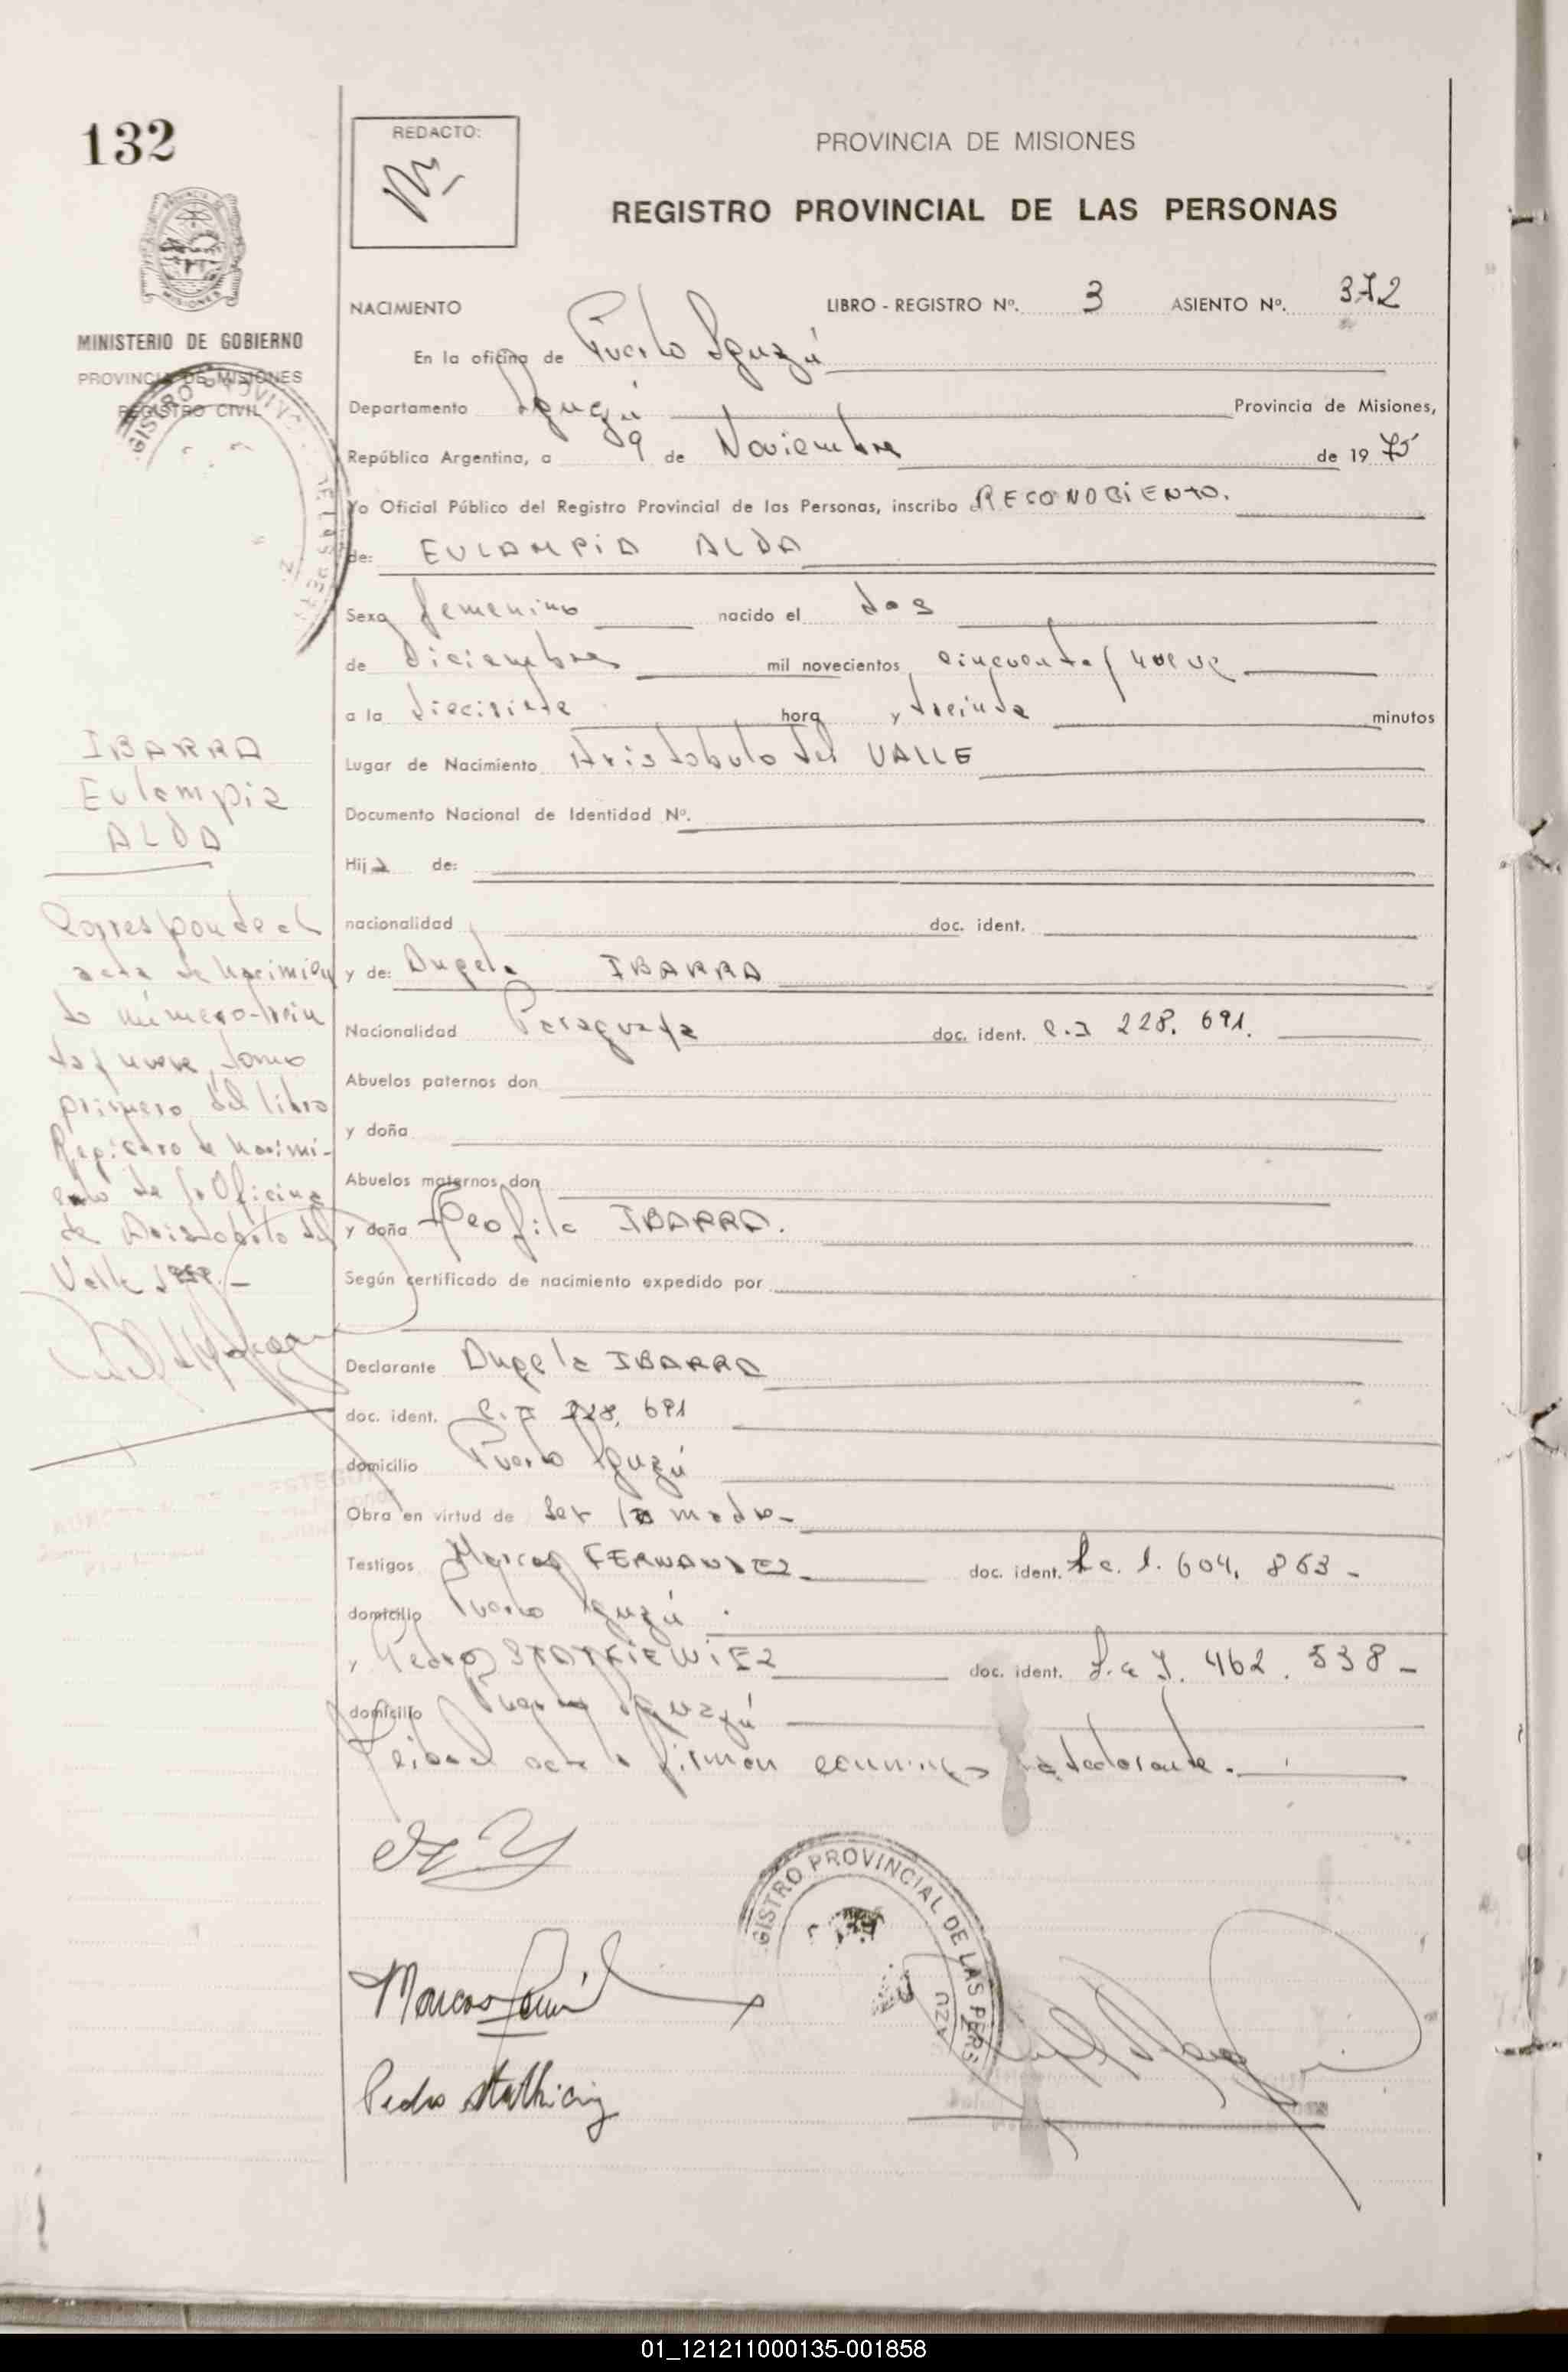 132
REDACTO:
PROVINCIA DE MISIONES
REGISTRO PROVINCIAL DE LAS PERSONAS
MINISTERIO DE GOBIERNO
PROVINCIA DE MISIONES
REGISTRO CIVIL
NACIMIENTO LIBRO - REGISTRO Nº. 3 ASIENTO Nº. 372
En la oficina de Puerto Iguazú
Departamento Iguazú Provincia de Misiones,
República Argentina, a 9 de Noviembre de 1975
Yo Oficial Público del Registro Provincial de las Personas, inscribo RECONOCIENTO.
de: EULAMPIA ALDA
Sexo femenino nacido el dos
de diciembre mil novecientos cincuenta y nueve
a la diecisiete hora y treinta minutos
Lugar de Nacimiento Aristobulo del VALLE
Documento Nacional de Identidad Nº.
Hija de:
nacionalidad doc. ident.
y de: Angela IBARRA
Nacionalidad Paraguaya doc. ident. C.I 228.691.
Abuelos paternos don
y doña
Abuelos maternos don
y doña Teofila IBARRA.
Según certificado de nacimiento expedido por
Declarante Angela IBARRA
doc. ident. C.I 228.691
domicilio Puerto Iguazú
Obra en virtud de ser la madre-
Testigos Marcos FERNANDEZ doc. ident. L.e. 1.604.863-
domicilio Puerto Iguazú.
y Pedro doc. ident. 462.538-
domicilio Puerto Iguazú
Leida el acta firman conmigo declarante.
IBARRA
Eulampia
ALDA
Corresponde al
acta de nacimien
to número trein
ta y nueve, tomo
primero del libro
Registro de nacimi-
ento de la Oficina
de Aristobulo del
Valle
REGISTRO PROVINCIAL DE LAS PERS
Marcos
Pedro
01_121211000135-001858